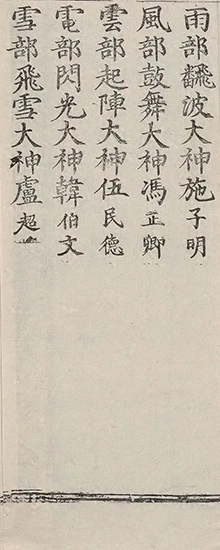 雨部翻波大神施子明
風部鼓舞大神馮正卿
雲部起陣大神伍民德
電部閃光大神韓伯文
雪部飛雪大神盧超